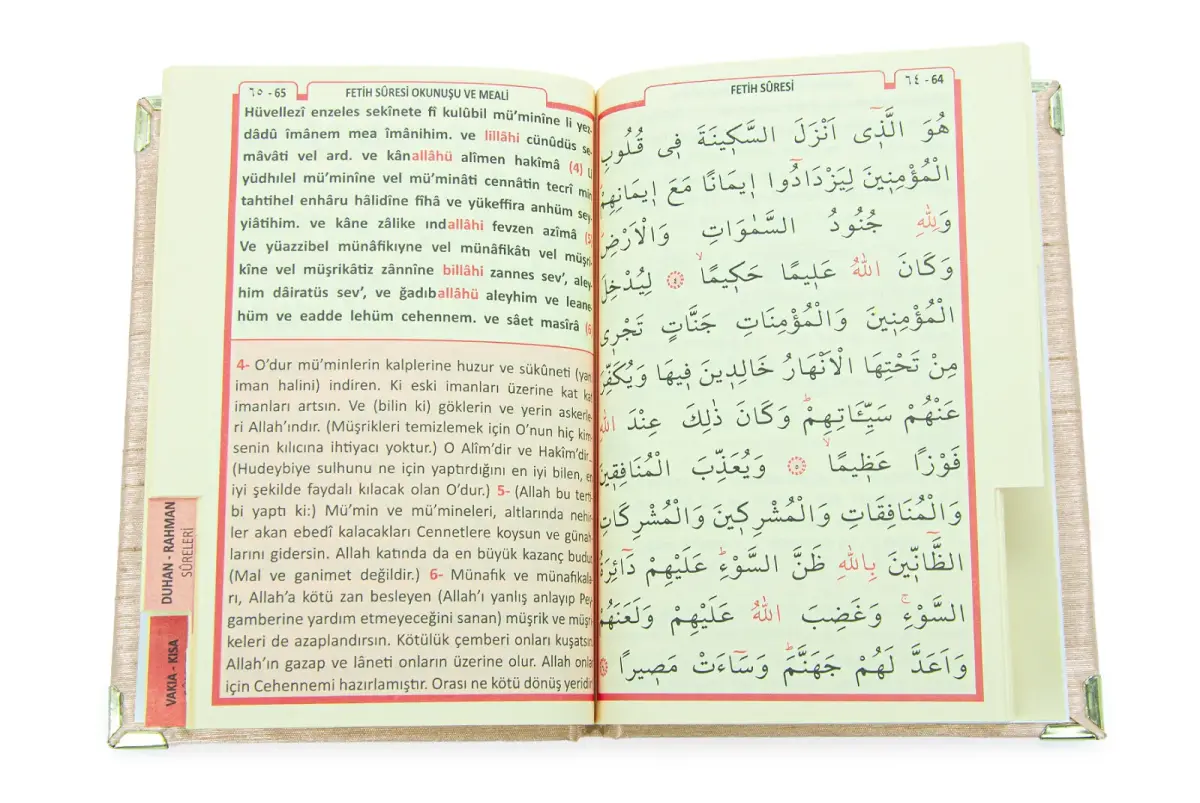 ٦٤ - 64
FETİH SÛRESİ
هُوَ الَّذٖٓي اَنْزَلَ السَّكٖينَةَ فٖي قُلُوبِ
الْمُؤْمِنٖينَ لِيَزْدَادُٓوا اٖيمَانًا مَعَ اٖيمَانِهِمْ
وَلِلّٰهِ جُنُودُ السَّمٰوَاتِ وَالْاَرْضِ
وَكَانَ اللّٰهُ عَلٖيمًا حَكٖيمًاۙ ﴿٤﴾ لِيُدْخِلَ
الْمُؤْمِنٖينَ وَالْمُؤْمِنَاتِ جَنَّاتٍ تَجْرٖي
مِنْ تَحْتِهَا الْاَنْهَارُ خَالِدٖينَ فٖيهَا وَيُكَفِّرَ
عَنْهُمْ سَيِّـَٔاتِهِمْۜ وَكَانَ ذٰلِكَ عِنْدَ اللّٰهِ
فَوْزًا عَظٖيمًاۙ ﴿٥﴾ وَيُعَذِّبَ الْمُنَافِقٖينَ
وَالْمُنَافِقَاتِ وَالْمُشْرِكٖينَ وَالْمُشْرِكَاتِ
الظَّٓانّٖينَ بِاللّٰهِ ظَنَّ السَّوْءِۜ عَلَيْهِمْ دَٓائِرَةُ
السَّوْءِۚ وَغَضِبَ اللّٰهُ عَلَيْهِمْ وَلَعَنَهُمْ
وَاَعَدَّ لَهُمْ جَهَنَّمَۜ وَسَٓاءَتْ مَصٖيرًا ﴿٦﴾
٦٥ - 65
FETİH SÛRESİ OKUNUŞU VE MEALİ
Hüvellezî enzeles sekînete fî kulûbil mü’minîne li yez-
dâdû îmânem mea îmânihim. ve lillâhi cünûdüs se-
mâvâti vel ard. ve kânallâhü alîmen hakîmâ (4) Li
yüdhılel mü’minîne vel mü’minâti cennâtin tecrî min
tahtihel enhâru hâlidîne fîhâ ve yükeffira anhüm sey-
yiâtihim. ve kâne zâlike ındallâhi fevzen azîmâ (5)
Ve yüazzibel münâfikıyne vel münâfikâtı vel müşri-
kîne vel müşrikâtiz zânnîne billâhi zannes sev’, aley-
him dâiratüs sev’, ve ğadıballâhü aleyhim ve leane-
hüm ve eadde lehüm cehennem. ve sâet masîrâ (6)
4- O’dur mü’minlerin kalplerine huzur ve sükûneti (yani
iman halini) indiren. Ki eski imanları üzerine kat kat
imanları artsın. Ve (bilin ki) göklerin ve yerin askerle-
ri Allah’ındır. (Müşrikleri temizlemek için O’nun hiç kim-
senin kılıcına ihtiyacı yoktur.) O Alîm’dir ve Hakîm’dir...
(Hudeybiye sulhunu ne için yaptırdığını en iyi bilen, en
iyi şekilde faydalı kılacak olan O’dur.) 5- (Allah bu terti-
bi yaptı ki:) Mü’min ve mü’mineleri, altlarında nehir-
ler akan ebedî kalacakları Cennetlere koysun ve günah-
larını gidersin. Allah katında da en büyük kazanç budur.
(Mal ve ganimet değildir.) 6- Münafık ve münafıkala-
rı, Allah’a kötü zan besleyen (Allah’ı yanlış anlayıp Pey-
gamberine yardım etmeyeceğini sanan) müşrik ve müşri-
keleri de azaplandırsın. Kötülük çemberi onları kuşatsın.
Allah’ın gazap ve lâneti onların üzerine olur. Allah onlar
için Cehennemi hazırlamıştır. Orası ne kötü dönüş yeridir.
DUHAN - RAHMAN
SÛRELERİ
VAKIA - KISA